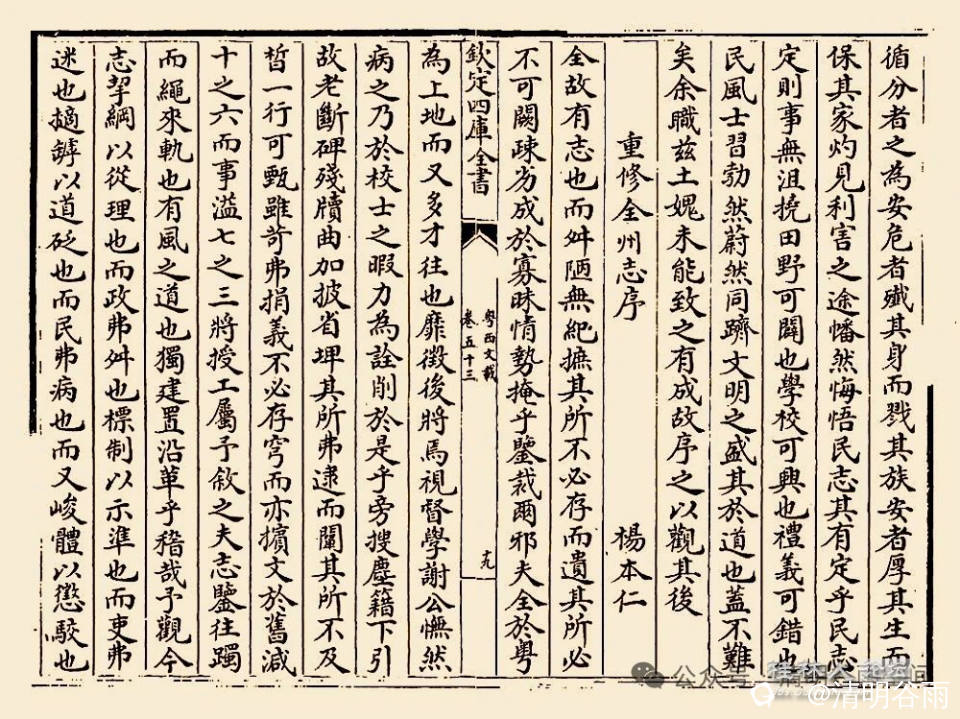 循分者之為安危者殲其身而戮其族安者厚其生而
保其家灼見利害之途幡然悔悟民志其有定乎民志
定則事無沮撓田野可闢也學校可興也禮義可錯也
民風士習勃然蔚然同躋文明之盛其於道也蓋不難
矣余職兹土媿未能致之有成故序之以觀其後
重修全州志序 楊本仁
全故有志也而舛陋無紀摭其所不必存而遺其所必
不可闕疎劣成於寡昧情勢掩乎鑒裁爾邪夫全於粤
欽定四庫全書
粤西文載
卷五十三
十九
為上地而又多才往也靡徴後將焉視督學謝公憮然
病之乃於校士之暇力為詮削於是乎旁搜塵籍下引
故老斷碑殘牘曲加披省埤其所弗逮而闡其所不及
晳一行可甄雖苛弗捐義不必存穹而亦擯文於舊減
十之六而事溢七之三將授工屬予敘之夫志鑒往躅
而繩來軌也有風之道也獨建置沿革乎稽哉予觀今
志挈綱以從理也而政弗舛也標制以示準也而吏弗
迷也擿罅以道砭也而民弗病也而又峻體以懲駮也
公众号
@清明谷雨